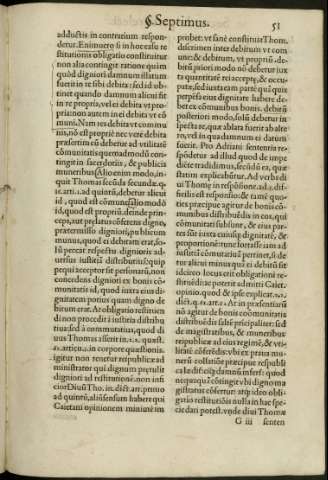 §. Septimus. 51
adductis in contrarium respon-
detur. Enimuero si in hoc casu re
stitutionis obligatio constituitur
non alia contingit ratione quàm
quòd digniori damnum illatum
fuerit in re sibi debita: sed id ob-
tinet quando damnum alicui fit
in re propria, vel ei debita vt pro-
pria: non autem in ei debita vt cõ
muni. Nam res debita vt commu
nis, nõ est propriè nec verè debita
præsertim cũ debetur ad vtilitatẽ
cõmunitatis quemadmodũ con-
tingit in sacerdotiis, & publicis
muneribus. Alio enim modo, in-
quit Thomas secũda secundæ. q.
61. art. 1. ad quintũ, debetur alicui
id, quod est cõmune: alio modò
id, quod est propriũ. deinde prin-
ceps, aut prelatus cõferens digno,
prætermisso digniori, publicum
munus, quod ei debitum erat, so-
lũ peccat respectu dignioris ad-
uersus iustitiã distributiuã: quip
pe qui acceptor sit personarũ, non
concedens digniori ex bonis cõ-
munitatis id, quod iuxta eius di-
gnitatem potius quam digno de
bitum erat. At obligatio restituen
di non procedit à iustitia distribu
tiua: sed à commutatiua, quod di
uus Thomas asserit in. 2. 2. quæst.
62. articu. 2. in corpore quæstionis.
igitur non tenetur reipublicæ ad
ministrator qui dignum prætulit
digniori ad restitutionẽ. non infi
cior Diuũ Tho. in. dict. art. primo
ad quintũ, aliũ sensum habere qui
Caietani opinionem minimè im
probet: vt sanè constituat Thom.
discrimen inter debitum vt com
mune: & debitum, vt propriũ. de-
bitũ priori modo nõ debetur iux
ta quantitatẽ rei acceptę, & occu-
patæ, sed iuxta eam partẽ quã quis
perpessus eius dignitate habere de-
bet ex cõmunibus bonis. debitũ
posteriori modo, solũ debetur in
specta re, quæ ablata fuerit ab alte-
ro, vel in qua damnum ei datum
fuerit. Pro Adriani sententia re-
spõdetur ad illud quod de impe
diẽte tradidimus, secũdũ ea, quæ
statim explicabũtur. Ad verba di
ui Thomæ in respõsione. ad. 2. dif-
ficilis est responsio: & tamẽ quo-
ties præcipue agitur de bonis cõ-
munibus distribuẽdis in eos, qui
cõmunitati subsunt, & eius par-
tes sũt iuxta cuiusq; dignitatẽ, &
proportionẽ: tunc fortasse am ad
iustitiã cõmutatiuã pertinet, si de
tur alicui minus quã ei debitũ sit
idcirco locus erit obligationi re-
stituẽdi: et poterit admitti Caiet.
opinio. quod & ipse explicat. 2. 2.
dict. q. 62. art. 2. At in præsentiarũ
nõ agitur de bonis cõmunitatis
distribuẽdis subditis præcipaliter: sed
de magistratibus, & muneribus
reipublicæ ad eius regimẽ, & vti-
litatẽ cõferẽdis: vbi ex prima mu-
neris collatiõe præcipue respubli
ca lædi & ei iq; damnũ infertur: quod
nequaquã cõtingit vbi digno ma
gistratus cõfertur: atq; ideo obli-
gatio restitutiõis nulla in hac spe-
cie dari potest. vnde diui Thomæ
G iii senten